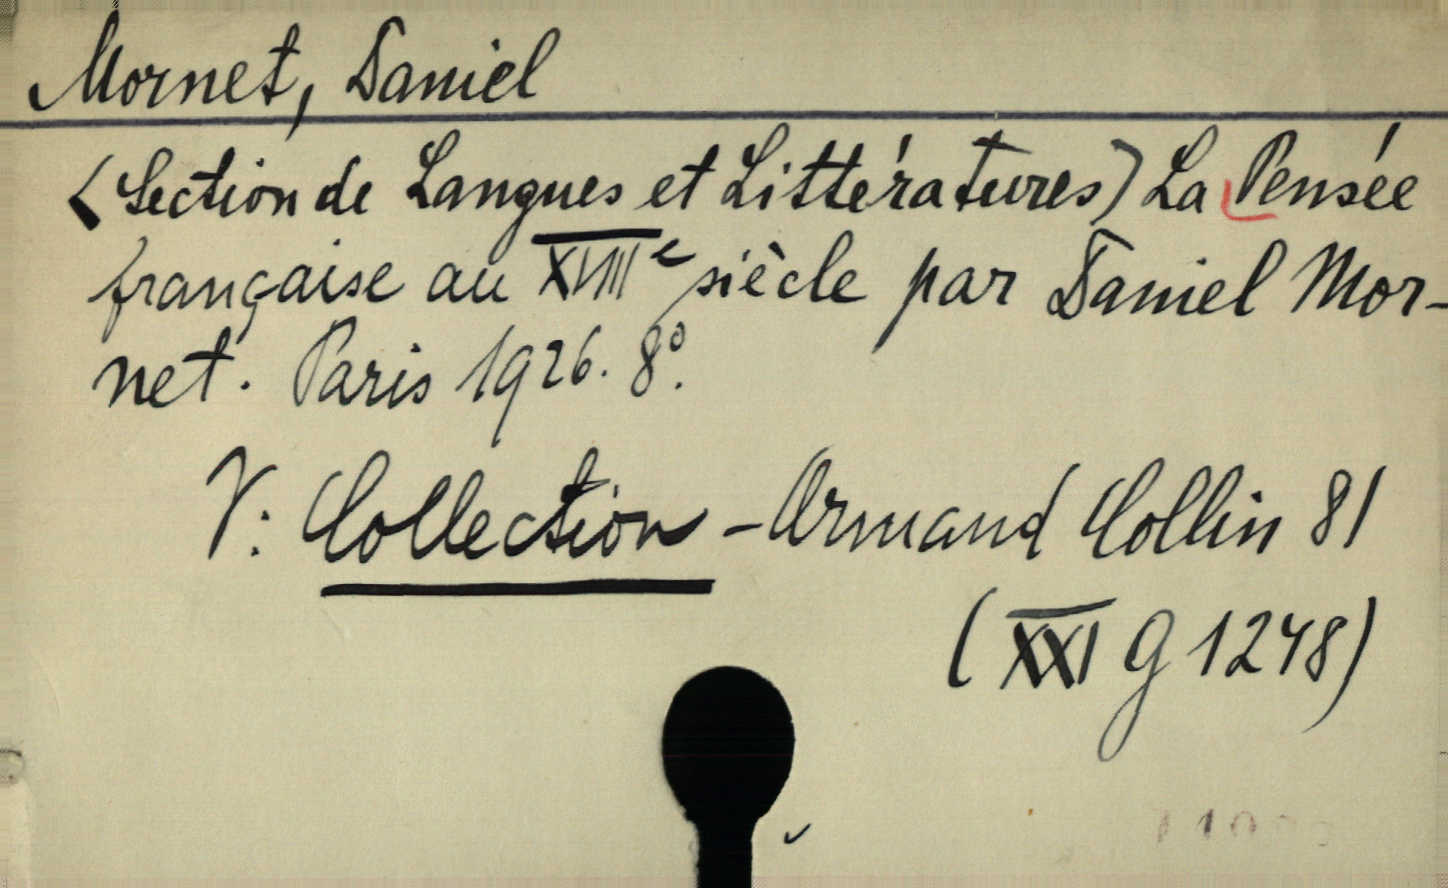 Mornet, Daniel
(Section de Langues et Littératures) La Pensée
française au XVIIIe siècle par Daniel Mor-
net. Paris 1926. 8°.
V: Collection - Armand Collin 81
(XXI G 1248)